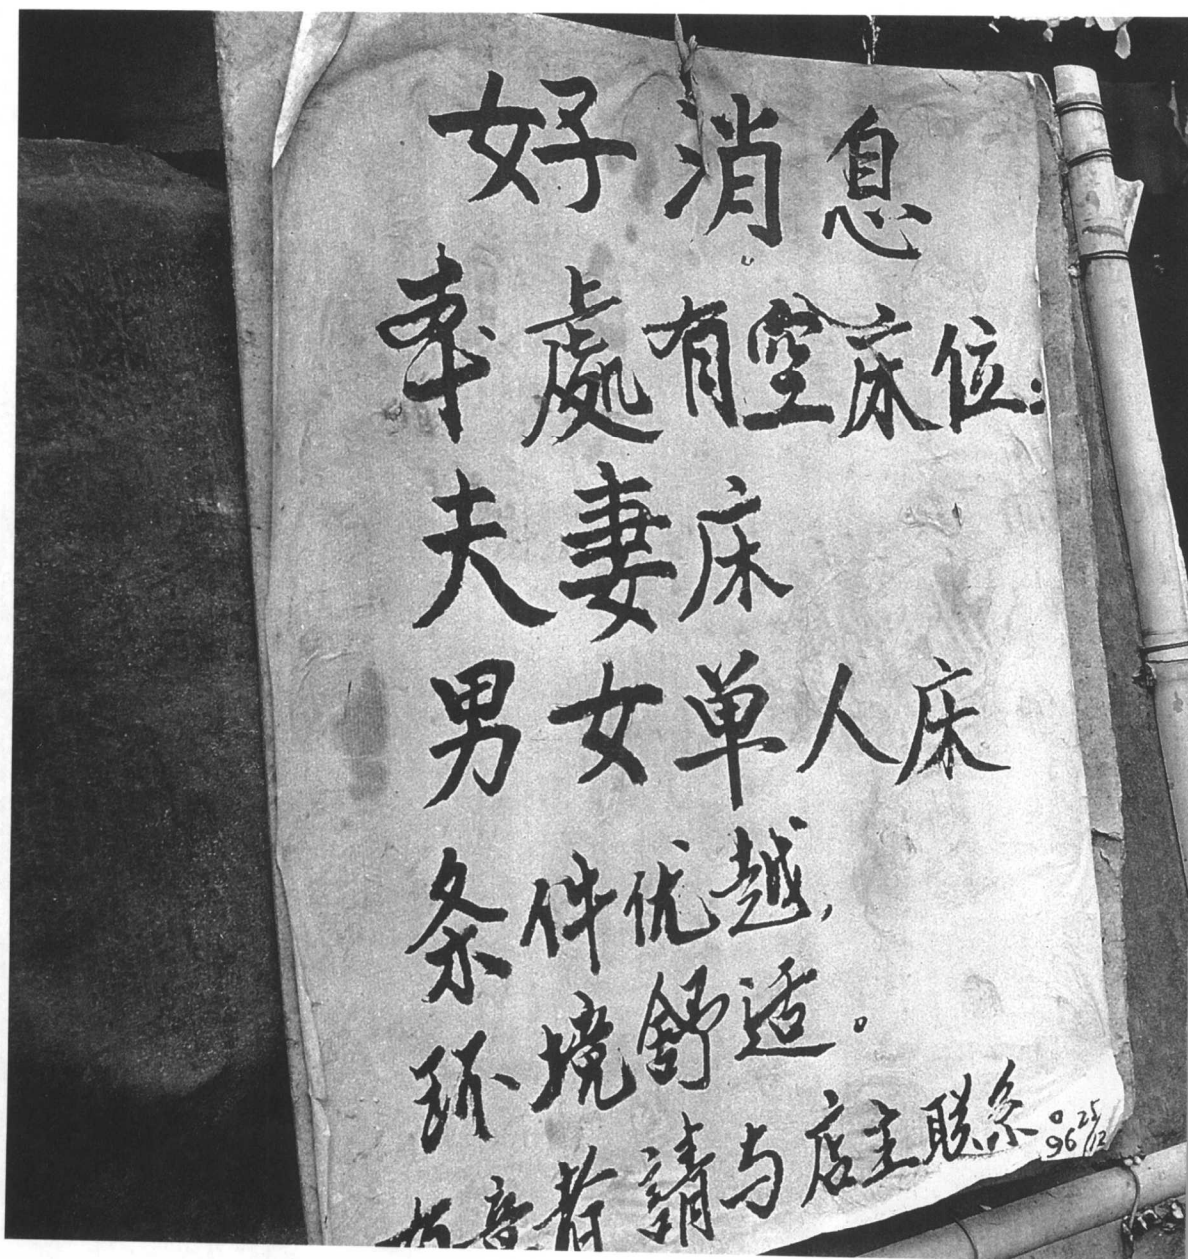 好消息
本處有空床位:
夫妻床
男女单人床
条件优越,
环境舒适。
有意者請与店主联系。
96 25/12